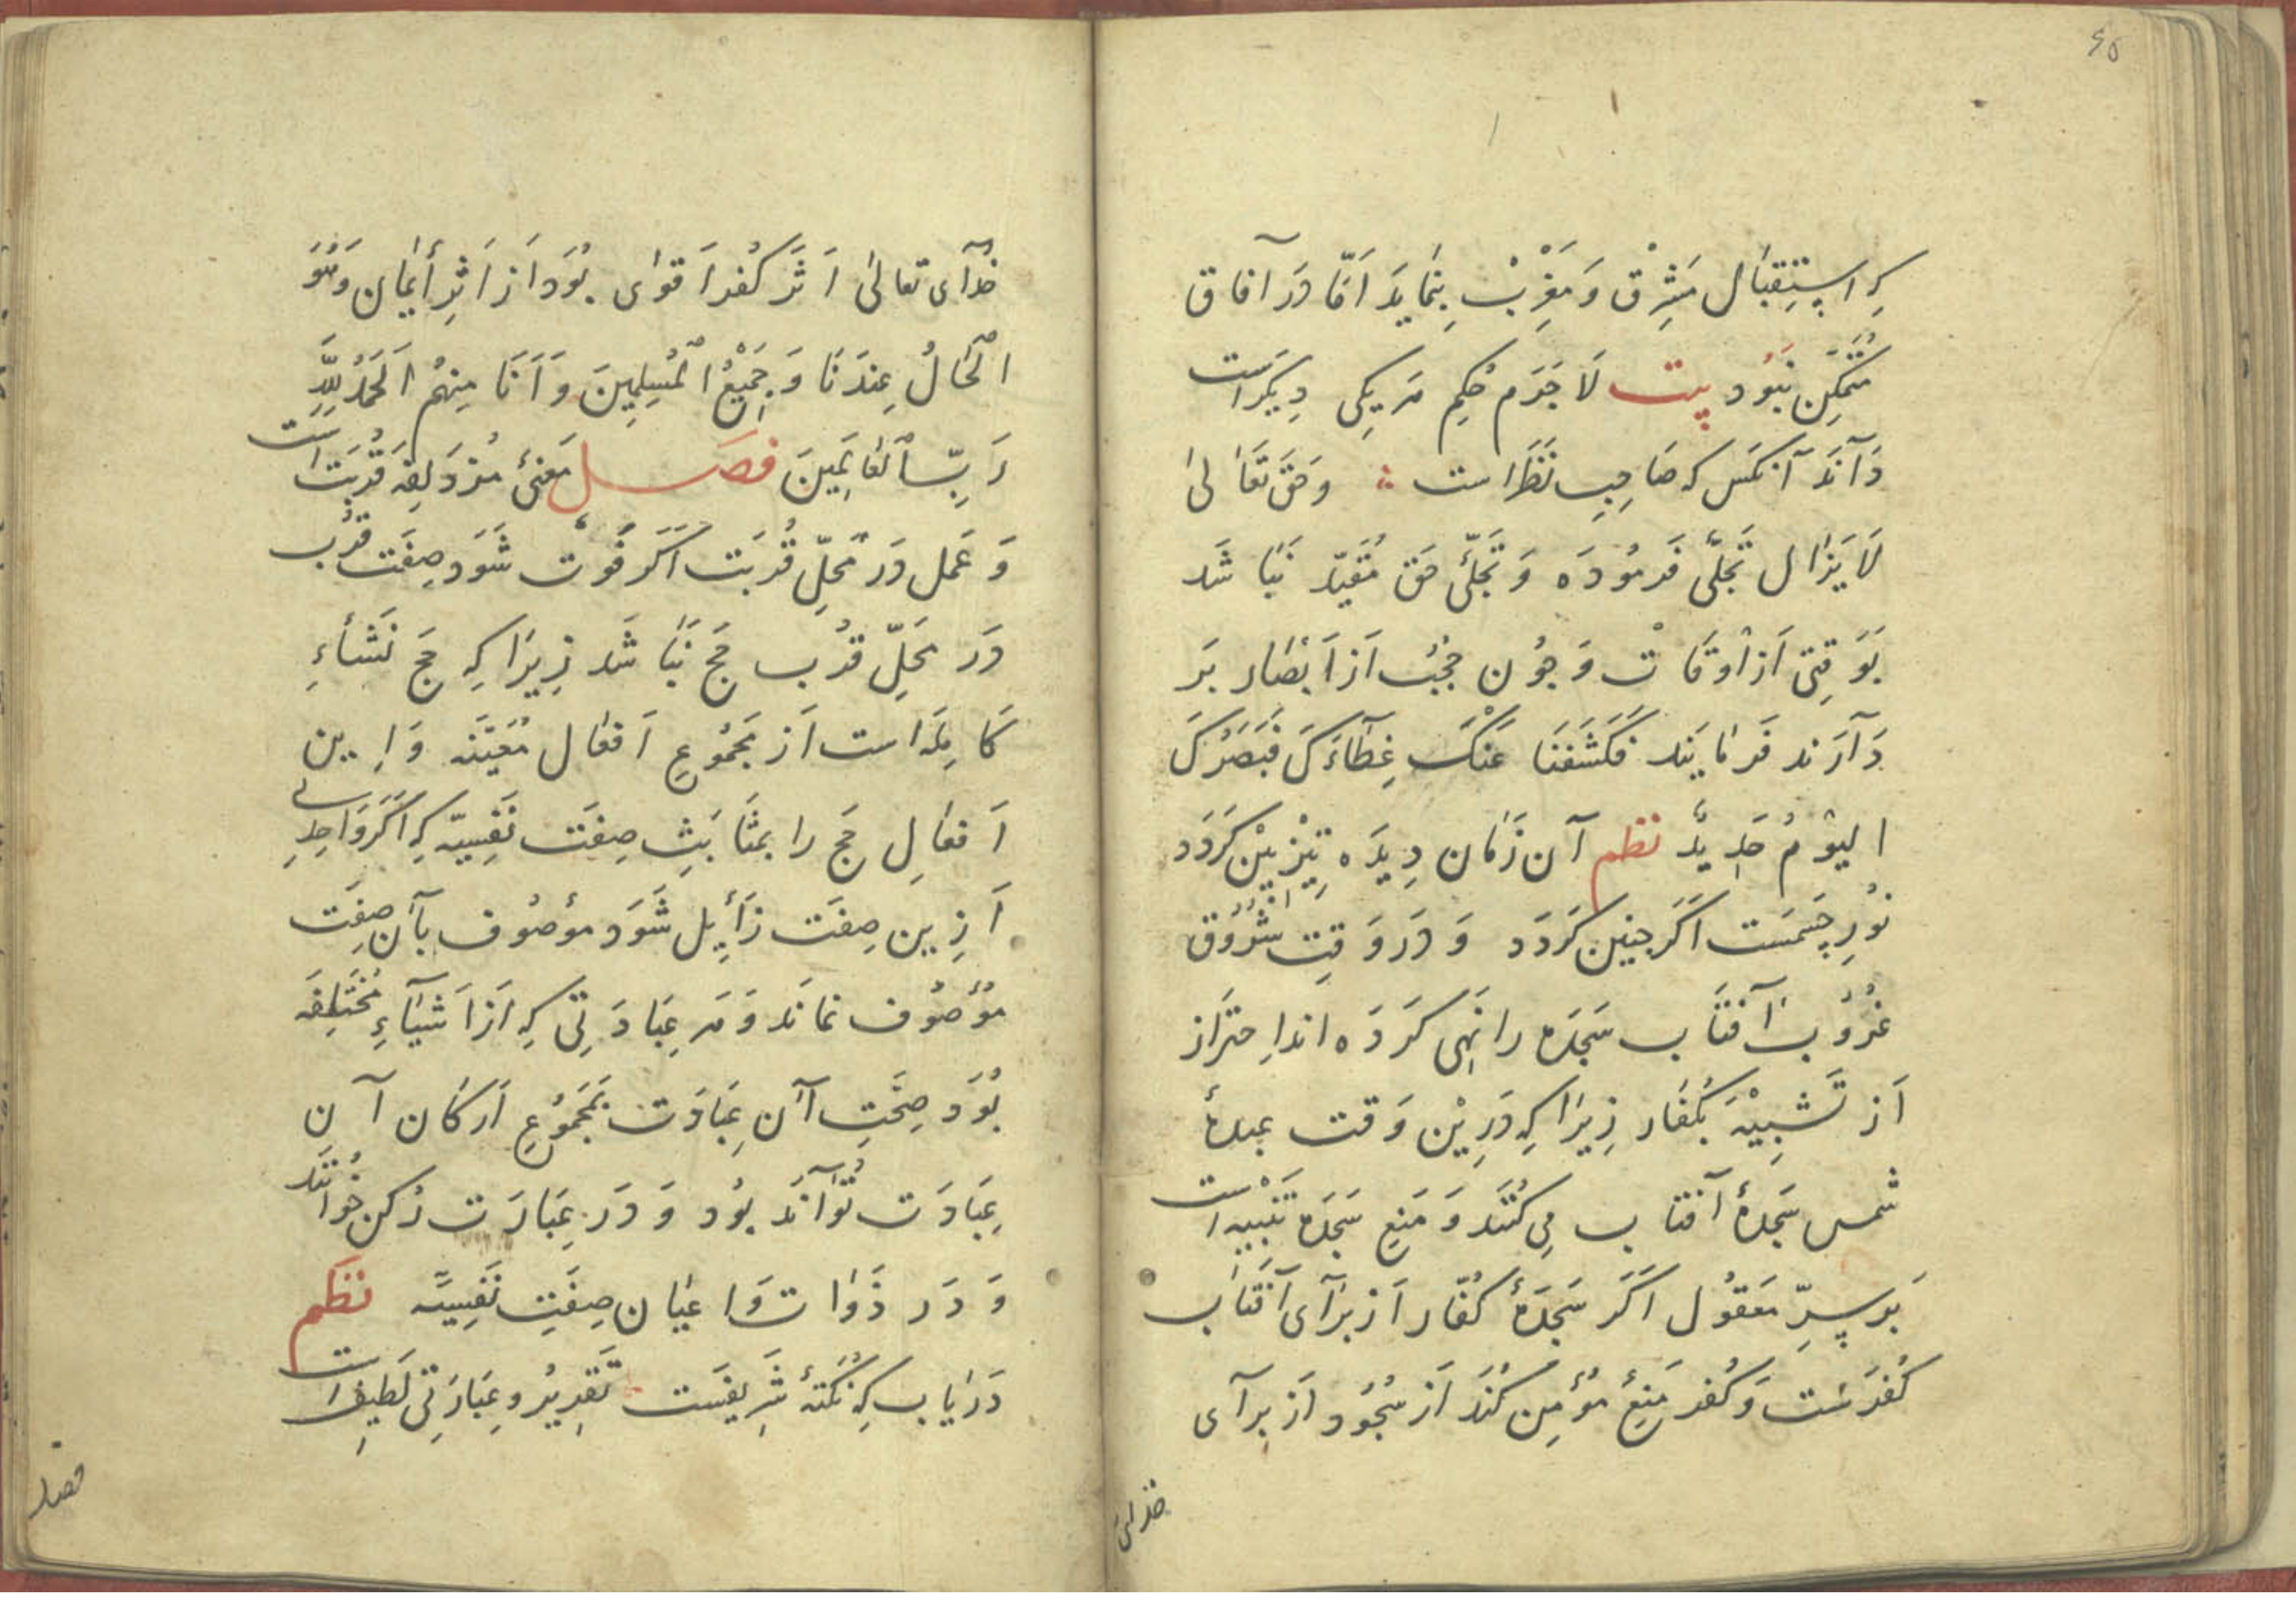 ٤٥
کِه اِستِقبَال مَشرِقْ وَ مَغرِبْ بِنمَایَد اَمَّا دَر آفاق
مُتَمَکِّن نَبُوَد بیت لَاجَرَم حُکمِ هَر یِکی دِیکَر است
دَانَد آنکَس که صَاحِبِ نَظَر است وحَق تَعَالیٰ
لَا یَزَال تَجَلّی فَرمُودَه وَ تَجَلّیِ حَق مُقَیَّد نَبَاشَد
بَوَقتِی اَز اَوقَاتْ وَ چُون حُجُب اَز اَبصَار بَر
دَآرَند فَرمَایَند فَکَشَفنَا عَنْکَ غِطَآءَکَ فَبَصَرُکَ
الیَوْمَ حَدِیدٌ نظم آن زَمَان دِیدَه تِیزبِیْن کَردَد
نُورِ چَشمَست اَکَر چنین کَردَد وَ دَر وَقتِ شُرُوق
غُرُوبِ آفتَاب سَجدَه را نَهی کَردَه اند اِحتَراز
اَز تَشبِیْه بَکُفّار زِیرَا کِه دَرِیْن وَقت عبدهٔ
شمس سَجدَهٔ آفتاب مِی کُنَند وَ مَنعِ سَجدَه تَنبِیْه است
بَر سِرِّ مَعقُول اَکَر سَجدَهٔ کُفّار اَز بَرآی آفتَاب
کُفرَست وَ کُفر مَنعِ مُؤمِن کُنَد اَز سُجُود اَز برآی
خدای
خُدَآی تعالیٰ اَثَرِ کُفر اَقوٰی بُوَد اَز اَثَرِ أیمَان وَهُوَ
الْحَالُ عِندَنَا وَ جَمِیْعُ الْمُسلِمِینَ وَ اَنَا مِنهُم اَلحَمدُ لِلّٰهِ
رَبِّ الْعَالَمِینَ فصَل مَعنیٔ مُزدَلِفَه قُربَت است
وَ عَمَل دَر مَحَلِّ قُربَت اَکَر فَوت شَوَد صِفَتِ قُرب
دَر مَحَلِّ قُرب حَج نَبَاشَد زِیرَا کِه حَج نَشأءِ
کَامِلَه است اَز مَجمُوعِ اَفعَال مُعَیَّنَه وَ اِین
اَفعَالِ حَج را بمثَابَتِ صِفَت نَفسِیَّه کِه اَکَر وَاحِدِی
اَزین صِفَت زَآیِل شَوَد مَوصُوف بآن صِفَت
مَوصُوف نمَانَد وَ هَر عِبَادَتِی کِه اَز اَشیَآءِ مُختَلِفَه
بُوَد صِحَّتِ آن عِبَادَت بَمَجمُوعِ اَرکَان آن
عِبَادَت تُوَآنَد بُود وَ دَر عِبَادَت رُکن خُوانَند
وَ دَر ذَوَات وَ اعیَان صِفَتِ نَفسِیَّه نَظم
دَریَاب کِه نُکتَهٔ شَرِیفَست تَقرِیرُ و عِبَارَتِی لَطِیفِ است
فصل